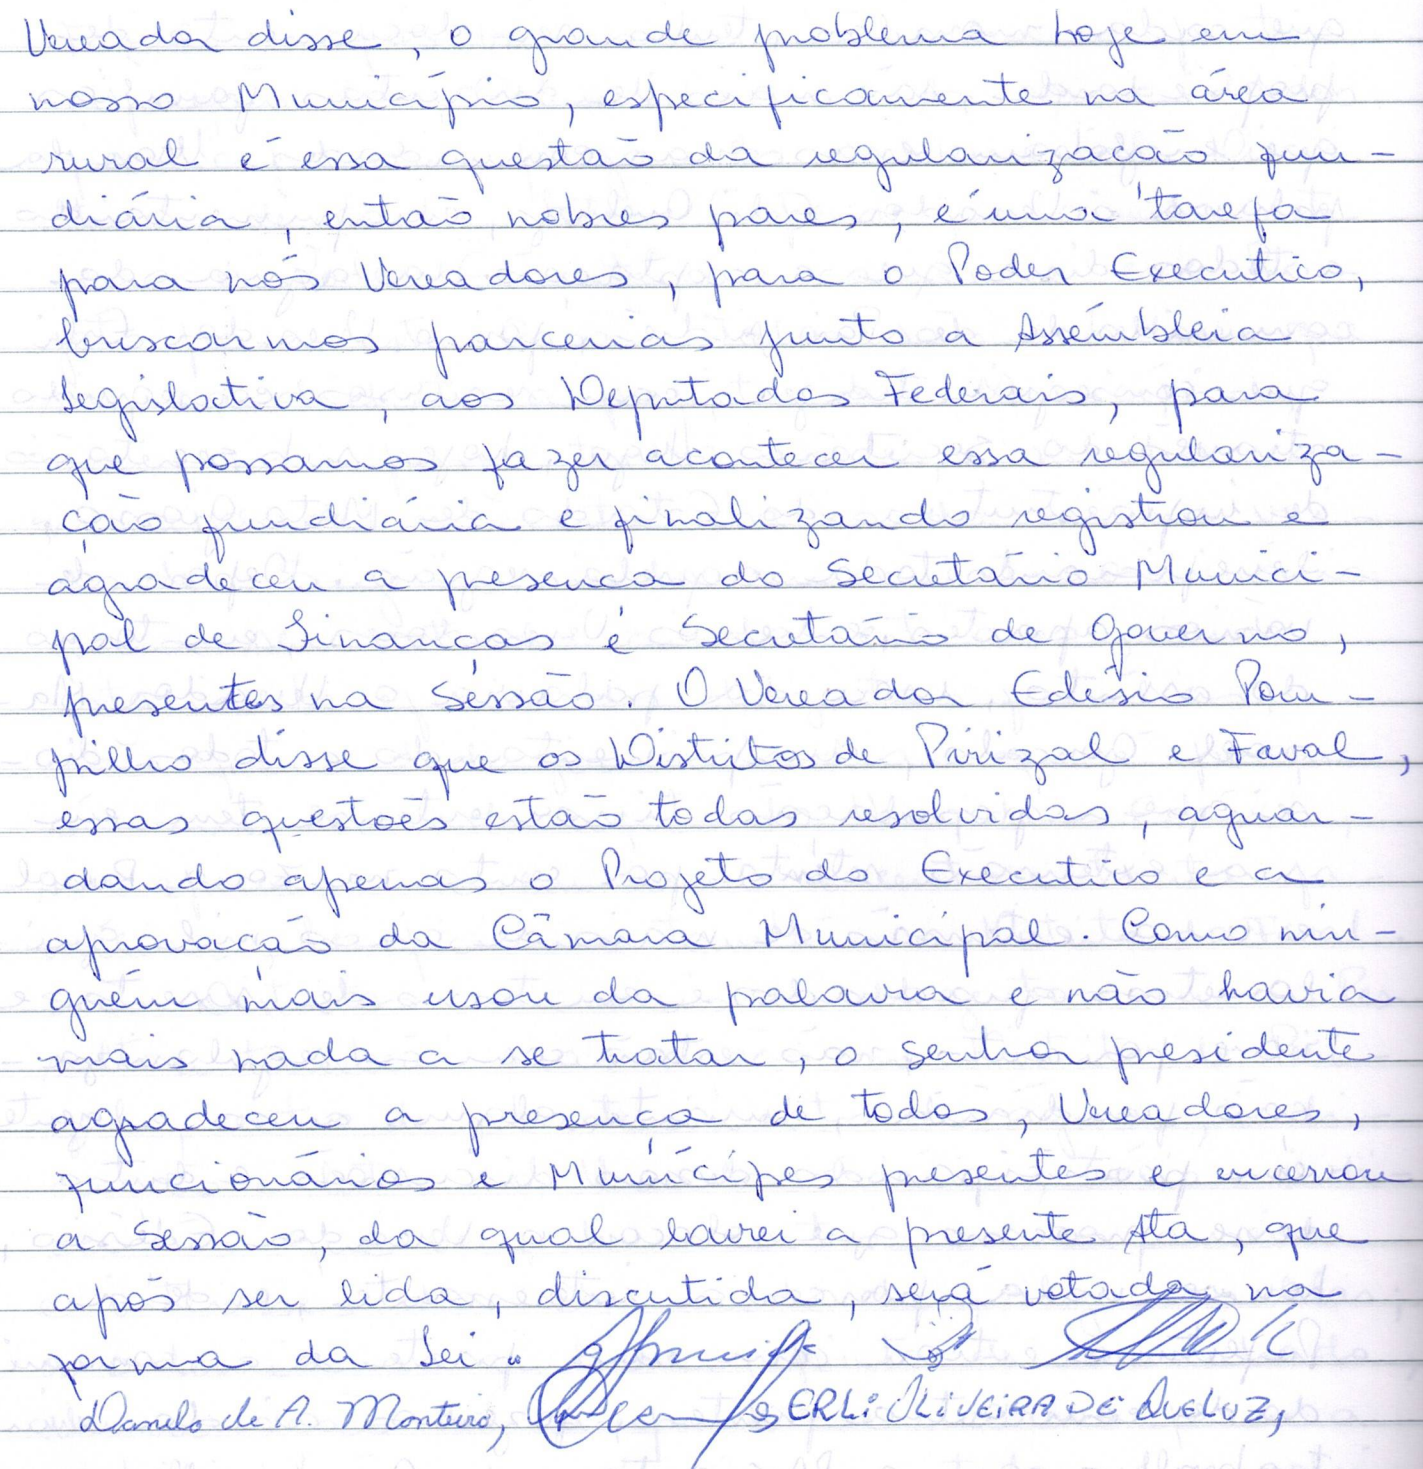 Vereador disse, o grande problema hoje em
nosso Município, especificamente na área
rural é essa questão da regularização fun-
diária, então nobres pares, é uma tarefa
para nós Vereadores, para o Poder Executivo,
buscarmos parcerias junto a Assembleia
Legislativa, aos Deputados Federais, para
que possamos fazer acontecer essa regulariza-
ção fundiária e finalizando registrou e
agradeceu a presença do Secretário Munici-
pal de Finanças e Secretário de Governo,
presentes na Sessão. O Vereador Edésio Pom-
pilho disse que os Distritos de Pirizal e Faval,
essas questões estão todas resolvidas, aguar-
dando apenas o Projeto do Executivo e a
aprovação da Câmara Municipal. Como nin-
guém mais usou da palavra e não havia
mais nada a se tratar, o senhor presidente
agradeceu a presença de todos, Vereadores,
funcionários e Munícipes presentes e encerrou
a Sessão, da qual lavrei a presente Ata, que
após ser lida, discutida, será votada na
forma da Lei "
Danilo de A. Monteiro, ERLI OLIVEIRA DE QUELUZ,